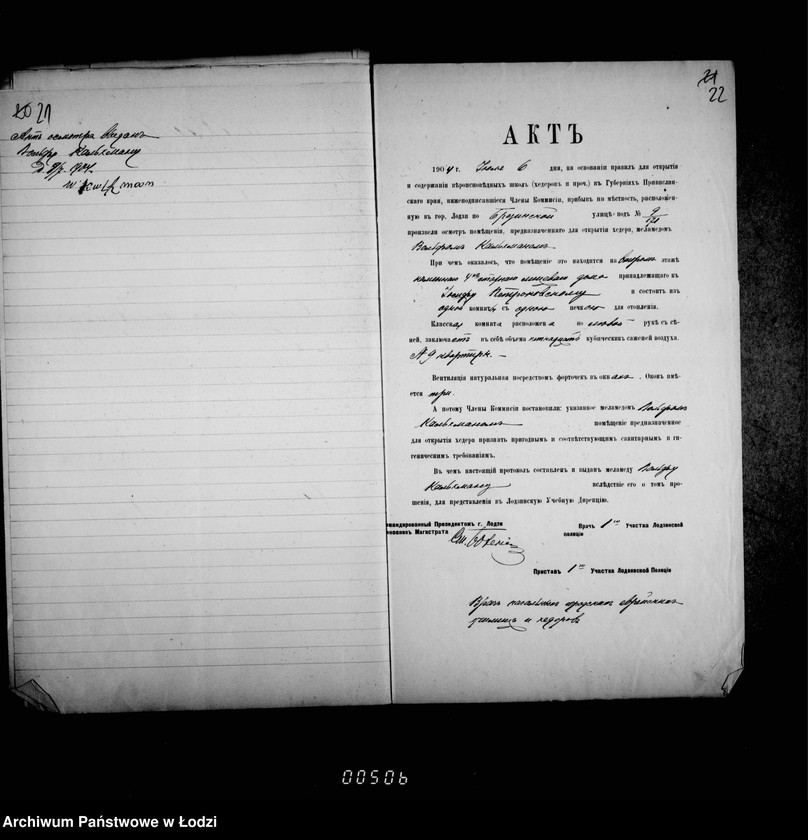 21
Актъ осмотра выданъ
Вольфу Кальхману
22
АКТЪ
1904 г. Іюля 6 дня, на основаніи правилъ для открытія
и содержанія вѣроисповѣдныхъ школъ (хедеровъ и проч.) въ Губерніяхъ Привислян-
скаго края, нижеподписавшіеся Члены Комисіи, прибывъ на мѣстность, расположен-
ную въ гор. Лодзи по улицѣ подъ №
произвели осмотръ помѣщенія, предназначеннаго для открытія хедера, меламедомъ
Вольфомъ Кальхманомъ
При чемъ оказалось, что помѣщеніе это находится на второмъ этажѣ
каменнаго 4хъ этажнаго лицеваго дома принадлежащаго
Петроковскому и состоитъ изъ
одной комнаты съ одною печкою для отопленія.
Классная комната расположена по лѣвой рукѣ съ сѣ-
ней, заключаетъ въ себѣ объема пятнадцать кубическихъ саженей воздуха.
№ 9 квартиры. —
Вентиляція натуральная посредствомъ форточекъ въ окнахъ. Оконъ имѣ-
ется три.
А потому Члены Комисіи постановили: указанное меламедомъ Вольфомъ
Кальхманомъ помѣщеніе предназначенное
для открытія хедера признать пригоднымъ и соотвѣтствующимъ санитарнымъ и ги-
гіеническимъ требованіямъ.
Въ чемъ настоящій протоколъ составленъ и выданъ меламеду Вольфу
Кальхману вслѣдствіе его о томъ про-
шенія, для представленія въ Лодзинскую Учебную Дирекцію.
мандированный Президентомъ г. Лодзи
новникъ Магистрата
Врачъ 1го Участка Лодзинской
полиціи
Приставъ 1го Участка Лодзинской Полиціи
Врачъ городскихъ еврейскихъ
училищъ и хедеровъ
00506
Archiwum Państwowe w Łodzi